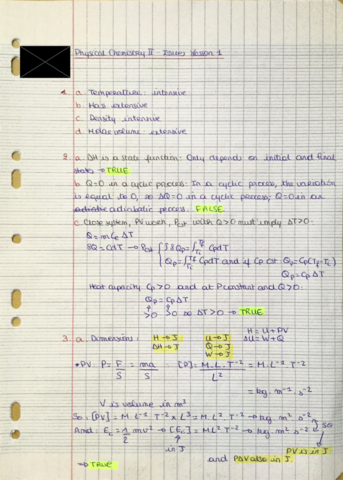 Physical Chemistry II - Issues Lesson 1
1. a. Temperature: intensive
b. Mass extensive
c. Density intensive
d. Molar volume: extensive
2. a. ΔH is a state function: Only depends on initial and final
state → TRUE
b. Q=0 in a cyclic process: In a cyclic process, the variation
is equal to 0, so ΔQ=0 in a cyclic process; Q=0 in an
adiabatic process. FALSE
c. Close system, PV work, Pcst with Q>0 must imply ΔT>0:
Q = mCp ΔT
δQ = CdT → Pcst { ∫δQp = ∫Ti^Tf CpdT
Qp = ∫Ti^Tf CpdT and if Cp cst: Qp = Cp(Tf-Ti)
Qp = Cp ΔT
Heat capacity Cp>0 and at P constant and Q>0:
Qp = Cp ΔT
>0 >0 so ΔT>0 → TRUE
3. a. Dimensions: H → J U → J H = U + PV
ΔH → J Q → J ΔU = W + Q
W → J
• PV: P = F/S = ma/S [P] = M.L.T⁻²/L² = M.L⁻¹.T⁻²
= kg.m⁻¹.s⁻²
V is volume in m³
So: [PV] = M.L⁻¹.T⁻² x L³ = M.L².T⁻² → kg.m².s⁻²
And: Ec = 1/2 mv² → [Ec] = M.L².T⁻² → kg.m².s⁻² so
in J PV is in J
→ TRUE and PΔV also in J.